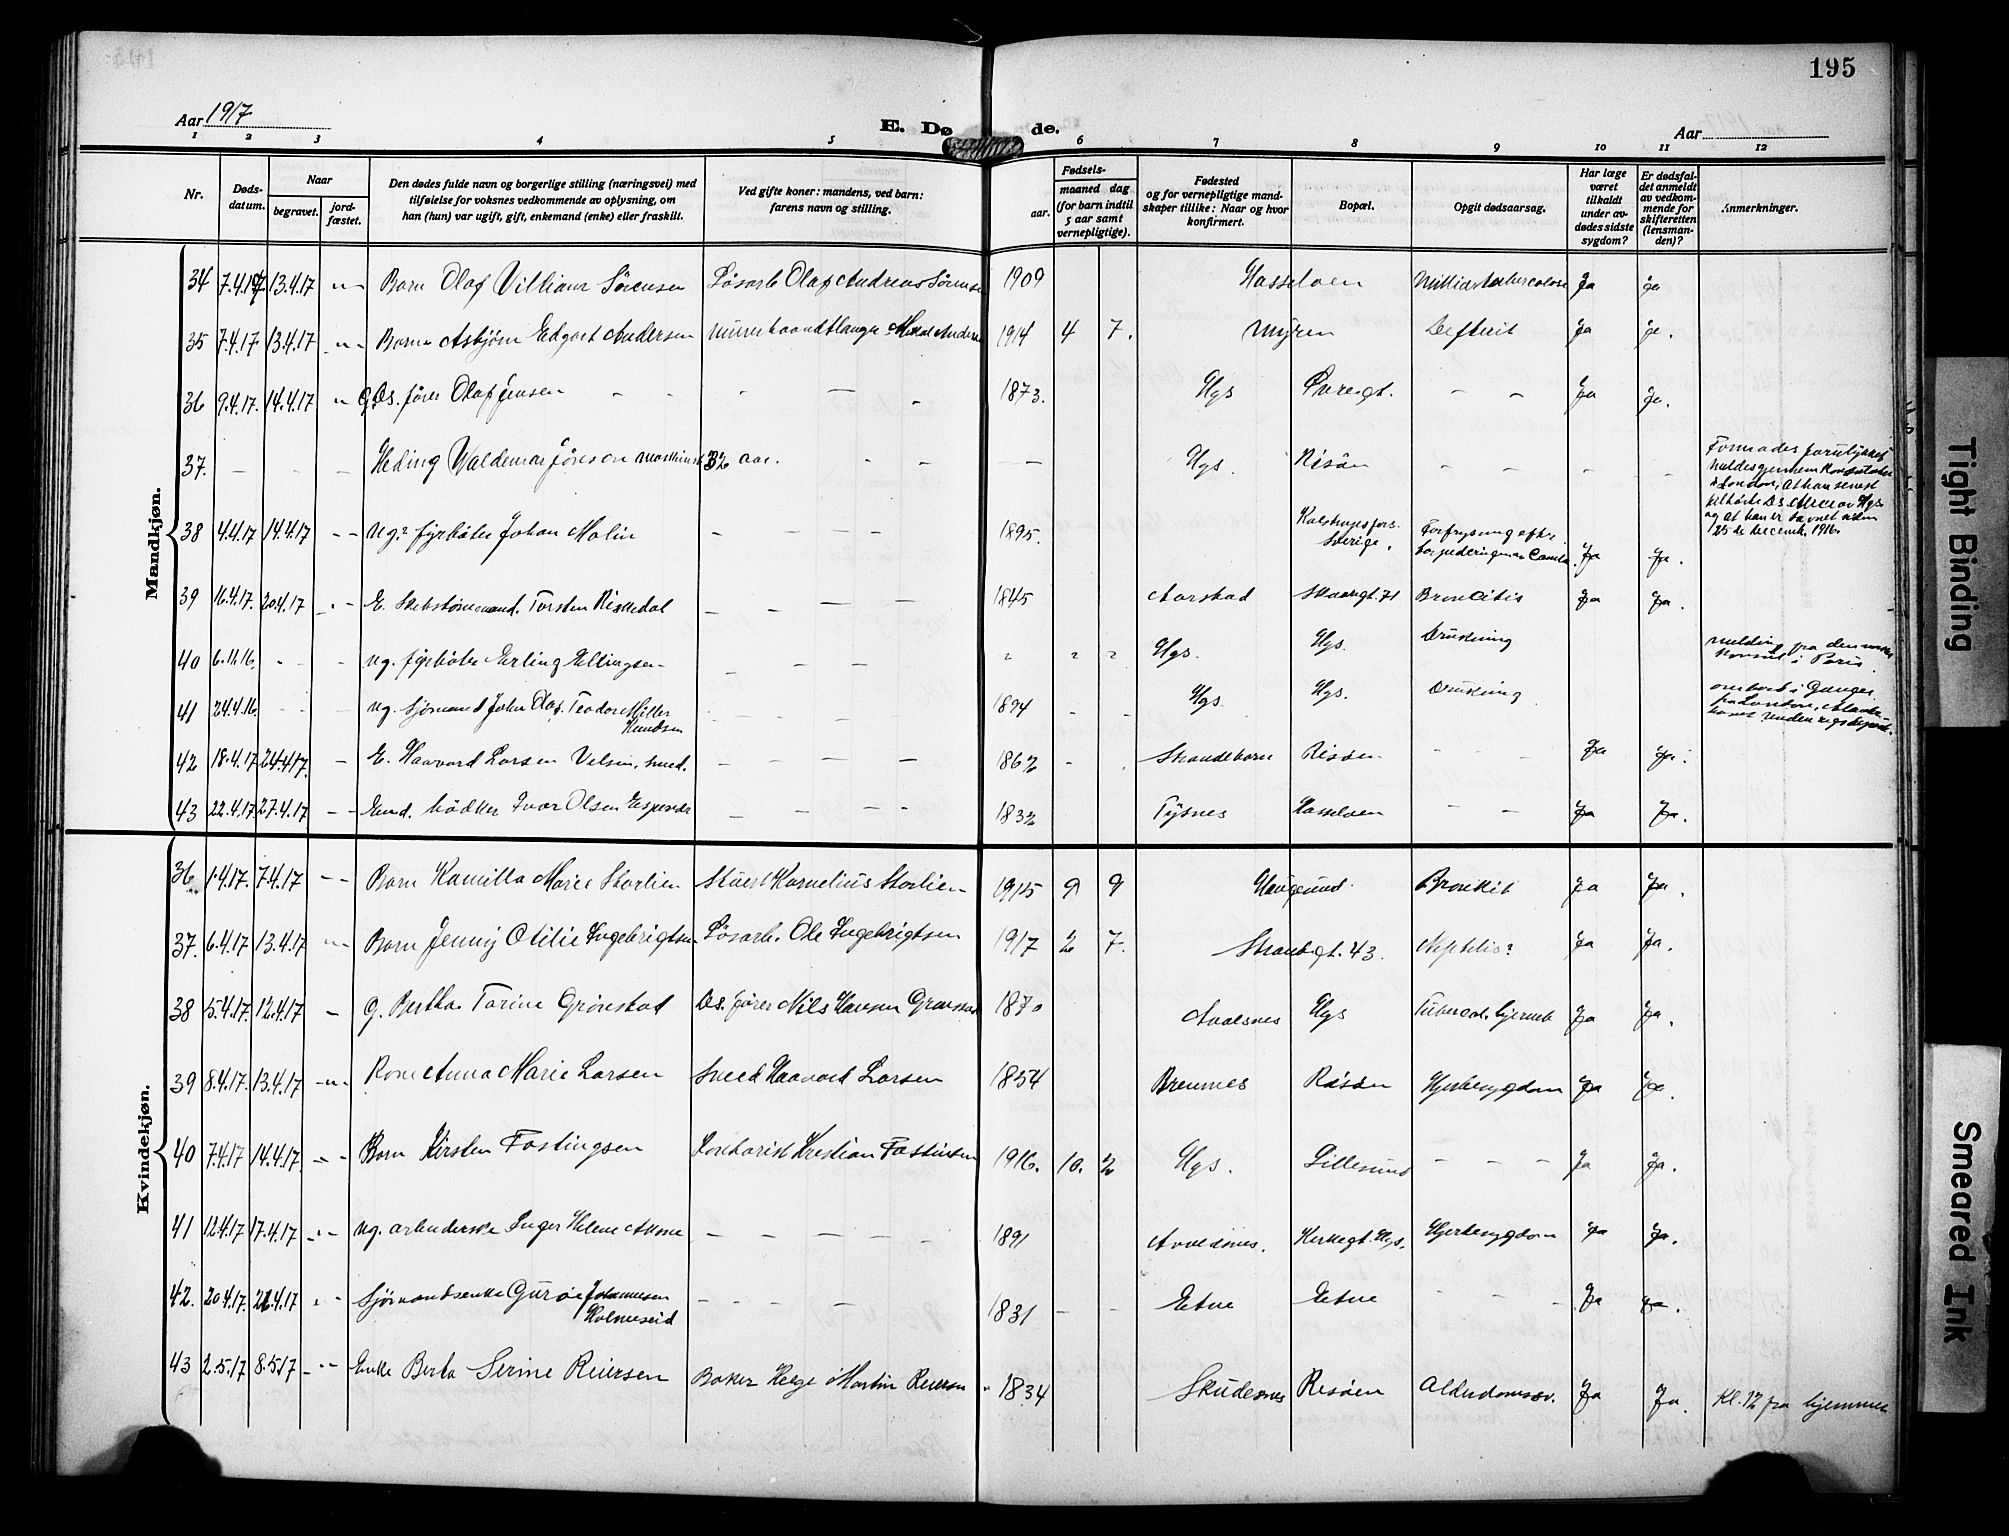 195
Aar 1917
E. Døde.
Aar
1 2 3 4 5 6 7 8 9 10 11 12
Nr.
Døds-datum.
Naar
begravet.
jord-fæstet.
Den dødes fulde navn og borgerlige stilling (næringsvei) med tilføielse for voksnes vedkommende av oplysning, om han (hun) var ugift, gift, enkemand (enke) eller fraskilt.
Ved gifte koner: mandens, ved barn: farens navn og stilling.
Fødsels-
aar.
maaned dag
(for barn indtil 5 aar samt vernepligtige).
Fødested og for vernepligtige mandskaper tillike: Naar og hvor konfirmert.
Bopæl.
Opgit dødsaarsag.
Har læge været tilkaldt under avdødes sidste sygdom?
Er dødsfaldet anmeldt av vedkommende for skifteretten (lensmanden)?
Anmerkninger.
Mandkjøn.
34 7.4.17 13.4.17 Barn Olaf Villiam Sørensen Løsarb Olaf Andreas Sørensen 1909 Hasseloen Ja ja
35 7.4.17 13.4.17 Barn Asbjørn Edgart Andersen 1914 4 7. Myren Difterit Ja ja.
36 9.4.17. 14.4.17 G. Ds. fører Olaf Jensen 1873. Hgs Øvregt. Ja Ja.
37. Heding Valdemar Jönsson maskinist 32 aar. Hgs. Risöen
38 4.4.17 14.4.17 ug. fyrböter Johan Molin 1895. Sverige. Ja Ja.
39 16.4.17. 20.4.17 E. Skibstömmermand. Torsten Riskedal 1845 Aarstad Skaaregt. 71 Broncitis Ja Ja.
40 6.11.16. ug. fyrböter Erling Ellingsen Hgs. Hgs. Drukning melding fra den norske konsul i Paris
41 24.4.16. ug. Sjömand John Olaf Teodor Miller Knudsen 1894 Hgs. Hgs. Drukning overbord i Ganges
42 18.4.17 24.4.17. E. Haavard Larsen Velsin, smed. 1862 Strandebarm Risöen Ja Ja.
43 22.4.17 27.4.17 Enkd. bödker Ivar Olsen Espevær 1832 Tysnes Hasseloen Ja Ja.
Kvindekjøn.
36 1.4.17. 7.4.17 Barn Kamilla Marie Storlien Kornelius Storlien 1915 9 9 Haugesund Bronkit ja Ja.
37. 6.4.17 13.4.17 Barn Jenny Otilie Ingebrigtsen Løsarb. Ole Ingebrigtsen 1917 2 7. Strandgt. 43. ja Ja.
38 5.4.17. 12.4.17 G. Bertha Torine Grönstad Ds. fører Nils Hansen Grønstad 1870 Avalsnes Hgs Ja Ja.
39 8.4.17. 13.4.17 Kone Anna Marie Larsen Smed Haavard Larsen 1854 Bremnes Risöen Hjertesygdom Ja ja.
40 7.4.17 14.4.17. Barn Kirsten Fostingsen Kristian 1916. 10. 2 Hgs. Lillesund Ja Ja.
41 12.4.17 17.4.17. ug. arbeiderske Inger Helene 1891 Avaldsnes. Kirkegt. Hgs. Hjertesygdom Ja Ja.
42. 20.4.17. Sjömandsenke Guroe Johannesen Holmeseid 1831 Etne Etne Ja ja.
43 2.5.17 8.5.17 Enke Berta Serine Reiersen Baker Helge Martin Reiersen 1834 Skudesnes Risöen Alderdomssv. Ja Ja. Kl. 12 fra hjemmet
Tight Binding
Smeared Ink